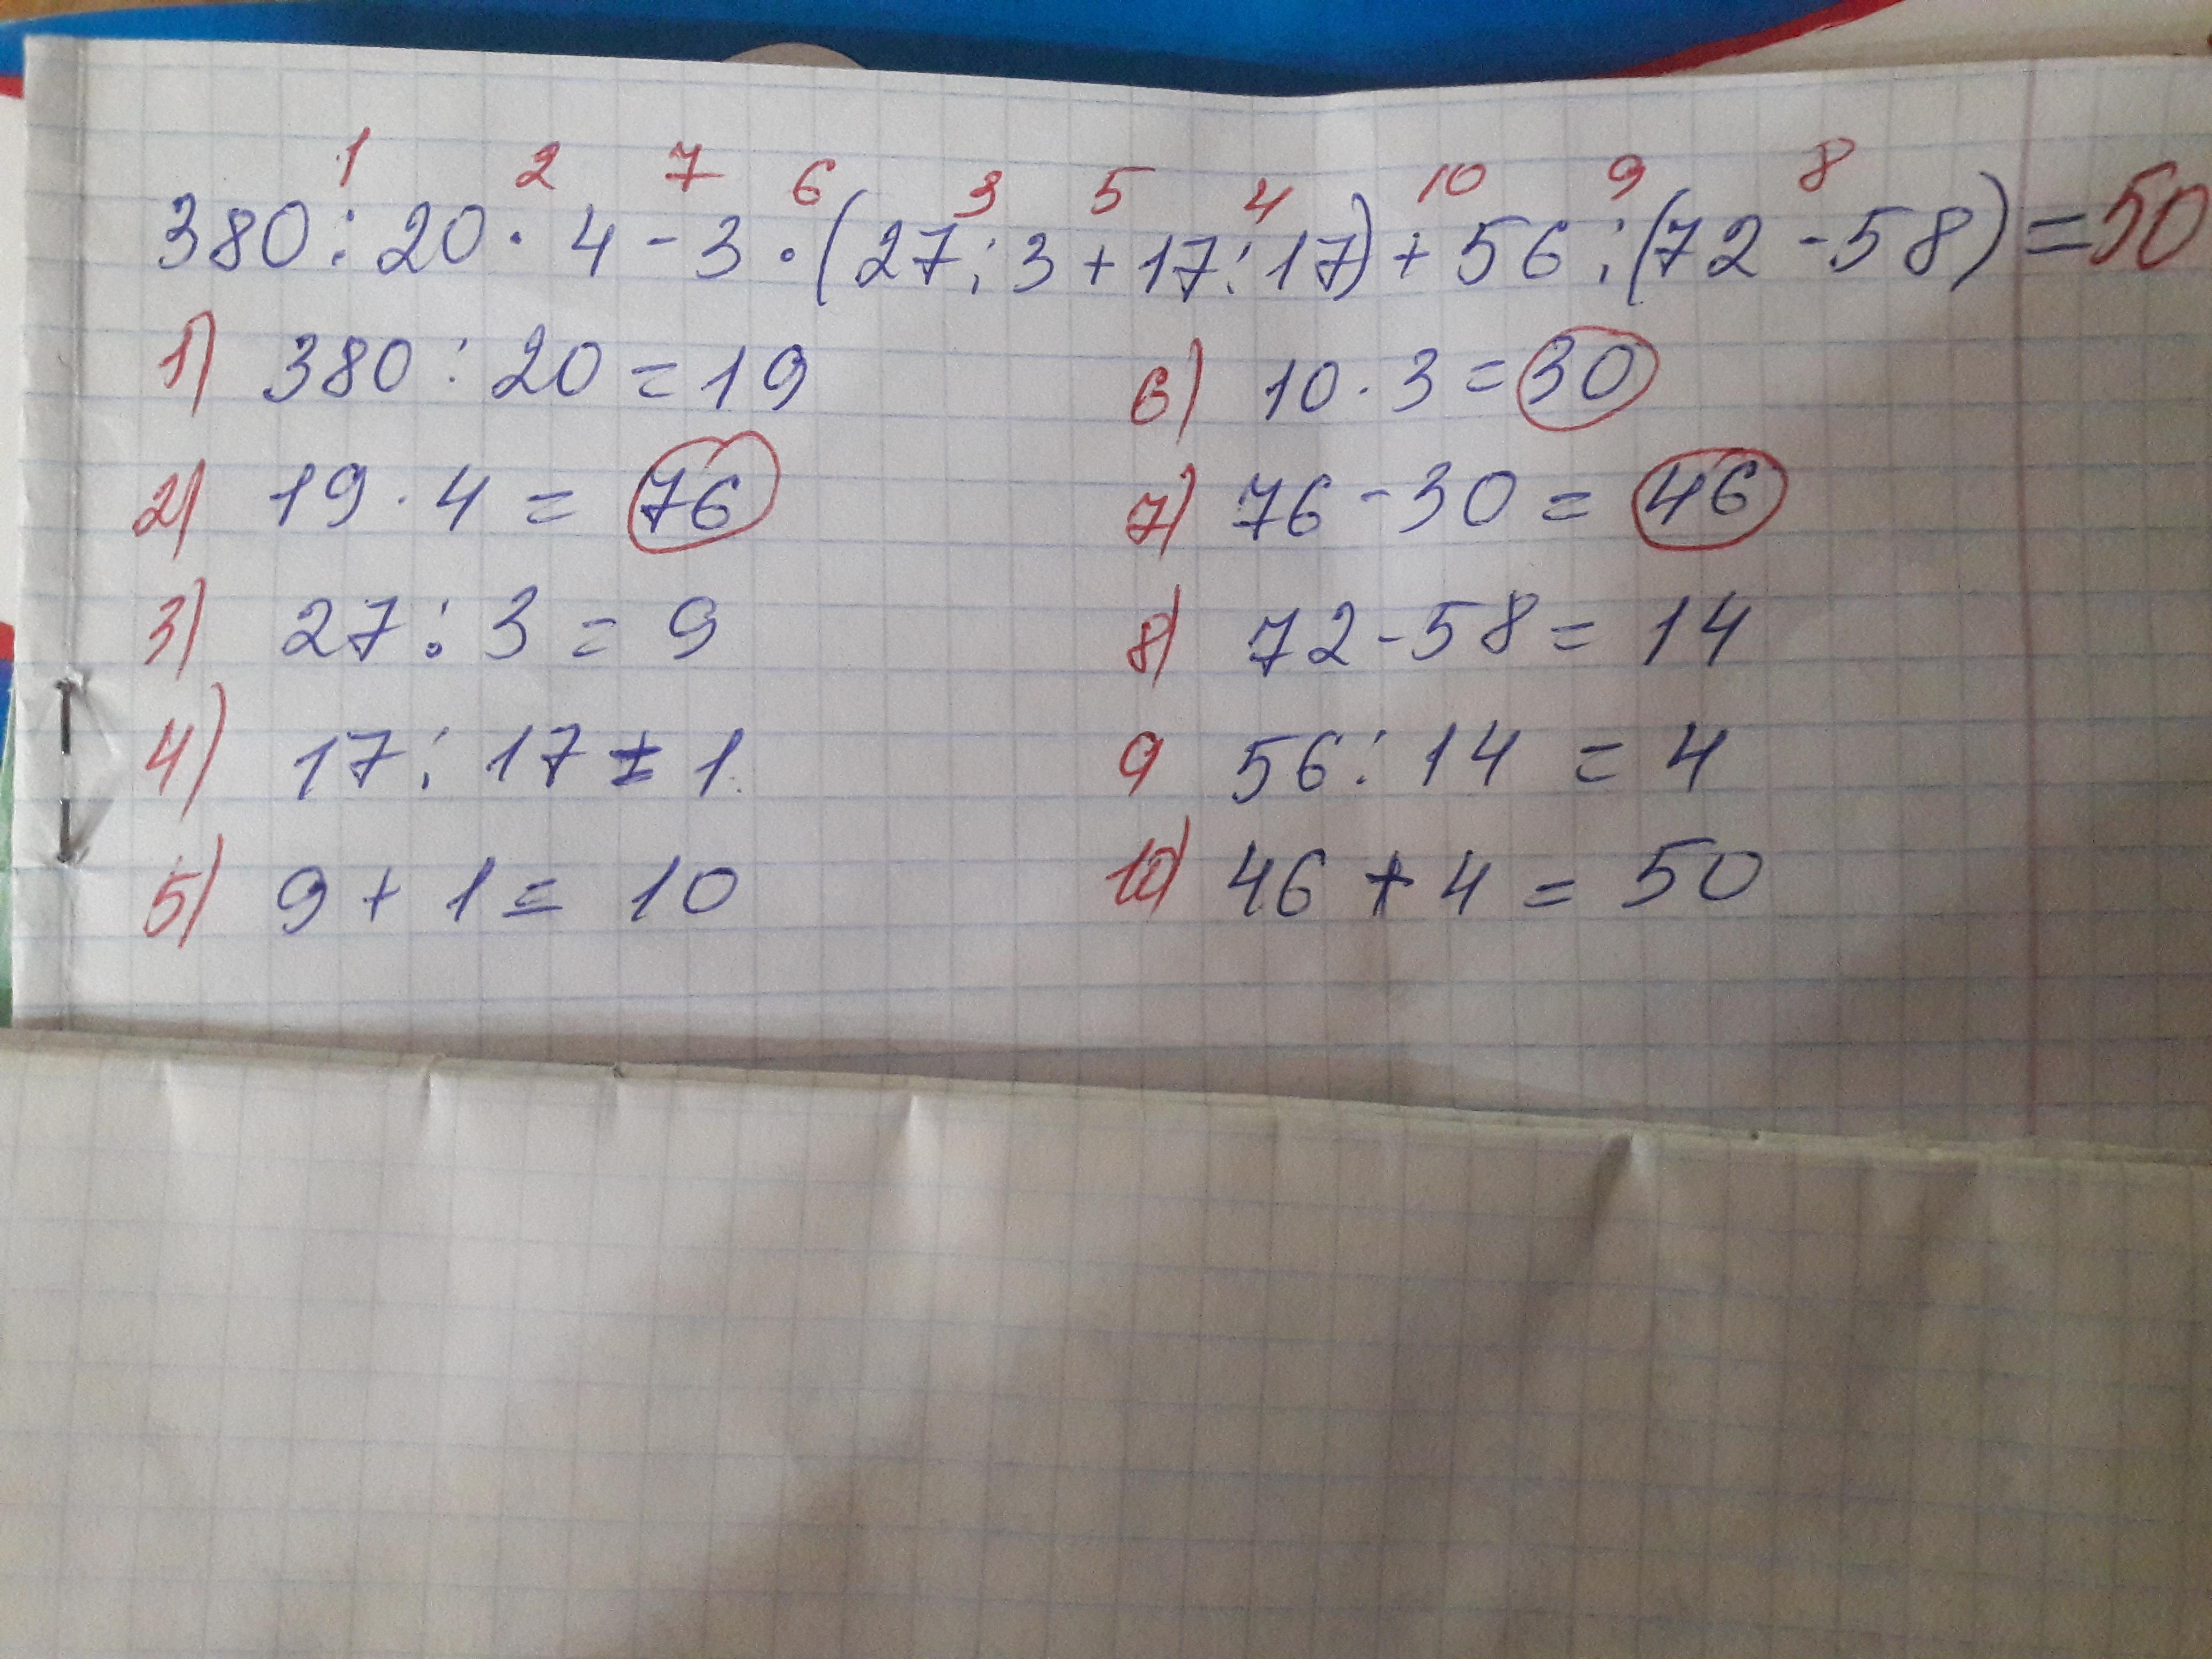 1 2 7 6 3 5 4 10 9 8
380 : 20 · 4 - 3 · (27 : 3 + 17 : 17) + 56 : (72 - 58) = 50
1) 380 : 20 = 19
2) 19 · 4 = 76
3) 27 : 3 = 9
4) 17 : 17 = 1
5) 9 + 1 = 10
6) 10 · 3 = 30
7) 76 - 30 = 46
8) 72 - 58 = 14
9 56 : 14 = 4
10) 46 + 4 = 50